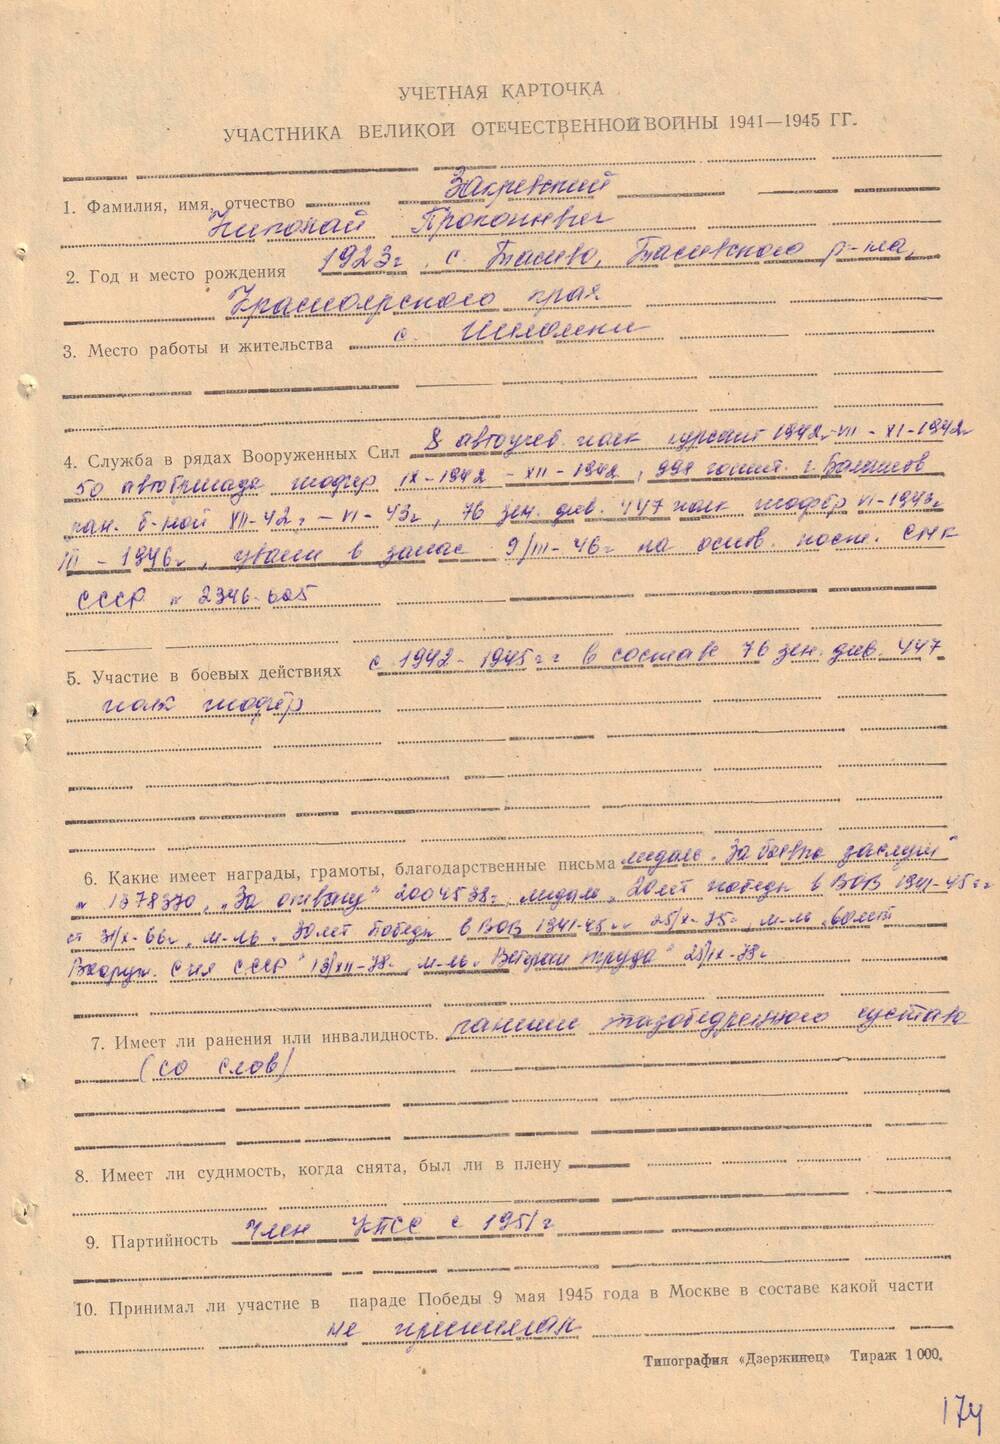 УЧЕТНАЯ КАРТОЧКА
УЧАСТНИКА ВЕЛИКОЙ ОТЕЧЕСТВЕННОЙ ВОЙНЫ 1941—1945 ГГ.
1. Фамилия, имя, отчество Закревский
Николай Прокопьевич
2. Год и место рождения 1923г. с. Тасеево, Тасеевского р-на,
Красноярского края
3. Место работы и жительства с.
4. Служба в рядах Вооруженных Сил 8 автоучеб. полк курсант 1942г-VII - XI-1942г
50 автобригада шофер IX-1942 - XII-1942, 991 госпит. г. Балашов
ран. б-ной XII-42г - VI-43г, 76 зен. див. 447 полк шофёр VI-1943г
III - 1946г, уволен в запас 9/III-46г на основ. пост. СНК
СССР № 2346-605
5. Участие в боевых действиях с 1942-1945гг в составе 76 зен. див. 447
полк шофёр
6. Какие имеет награды, грамоты, благодарственные письма медаль „За боевые заслуги"
№ 1078370, „За отвагу" 2004538г, медаль „20 лет победы в ВОВ 1941-45гг
от 31/X-66г, м-ль „30 лет Победы в ВОВ 1941-45гг" 25/X-75г, м-ль „60 лет
Вооруж. Сил СССР" 13/XII-78г, м-ль „Ветеран труда" 25/IX-78г
7. Имеет ли ранения или инвалидность. ранение тазобедренного сустава
(со слов)
8. Имеет ли судимость, когда снята, был ли в плену
9. Партийность Член КПСС с 1951г
10. Принимал ли участие в параде Победы 9 мая 1945 года в Москве в составе какой части
не принимал
Типография «Дзержинец» Тираж 1 000.
174